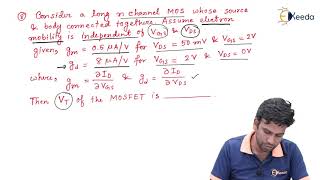 Ekeeda
⑧ Consider a long n channel MOS whose source
& body connected together. Assume electron
mobility is independent of VGS & VDS
given, gm = 0.5 μA/V for VDS = 50 mV & VGS = 2V
→ gd = 8 μA/V for VGS = 2V & VDS = 0V
where, gm = ∂ID/∂VGS & gd = ∂ID/∂VDS ✓
Then VT of the MOSFET is ______